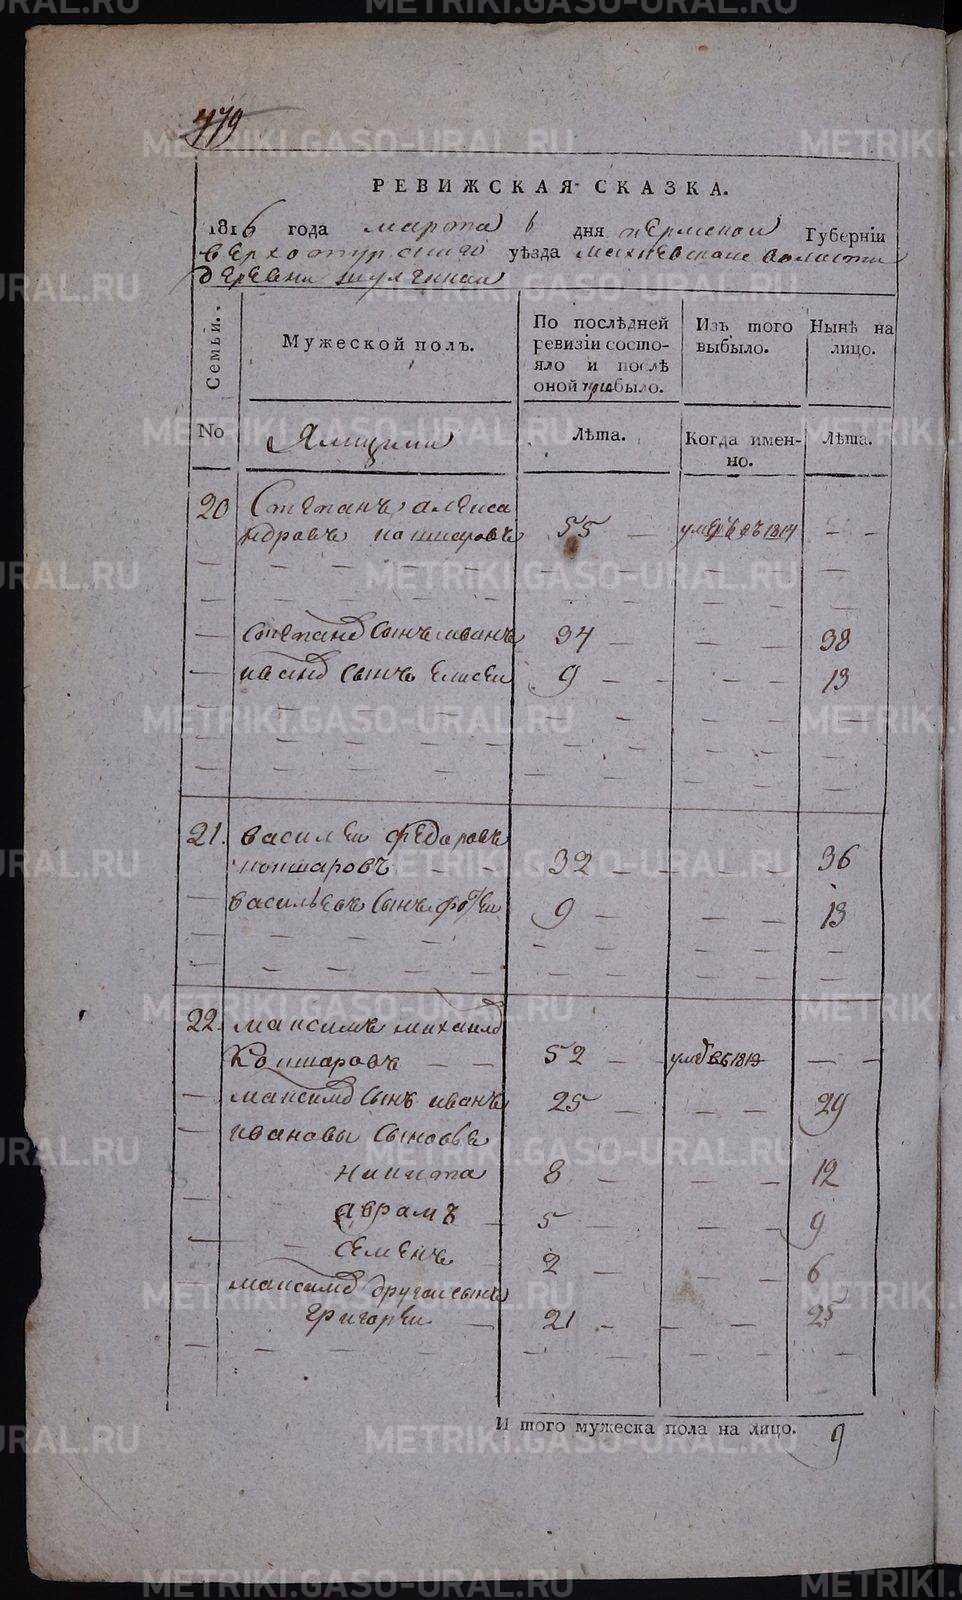 479
РЕВИЖСКАЯ СКАЗКА.
1816 года марта 6 дня пермской Губерніи
верхотурскаго уѣзда махневской воласти
деревни
Семьи.
Мужеской полъ.
По послѣдней ревизіи состояло и послѣ оной прибыло.
Изъ того выбыло.
Нынѣ на лицо.
No
Ямщики
Лѣта.
Когда именно.
Лѣта.
20 Степанъ алекса
ндровъ кошкаровъ 55 — умеръ въ 1814 — —
— степанов сынъ иванъ 34 — — — 38
— иванов сынъ елисеи 9 — — — — 13
21. василеи федоровъ
кошкаровъ — — 32 — — — — 36
— васильевъ сынъ 9 — — — 13
22. максимъ михаилов
Кошкаровъ — — 52 — умер въ 1813 — —
— максимов сынъ иванъ 25 — — — 29
— ивановы сыновья
никита 8 — — — 12
— аврамъ — 5 — — — 9
— — семенъ 2 — — — 6
— максимов другои сынъ
григореи — 21 — — — 25
И того мужеска пола на лицо. 9
METRIKI.GASO-URAL.RU